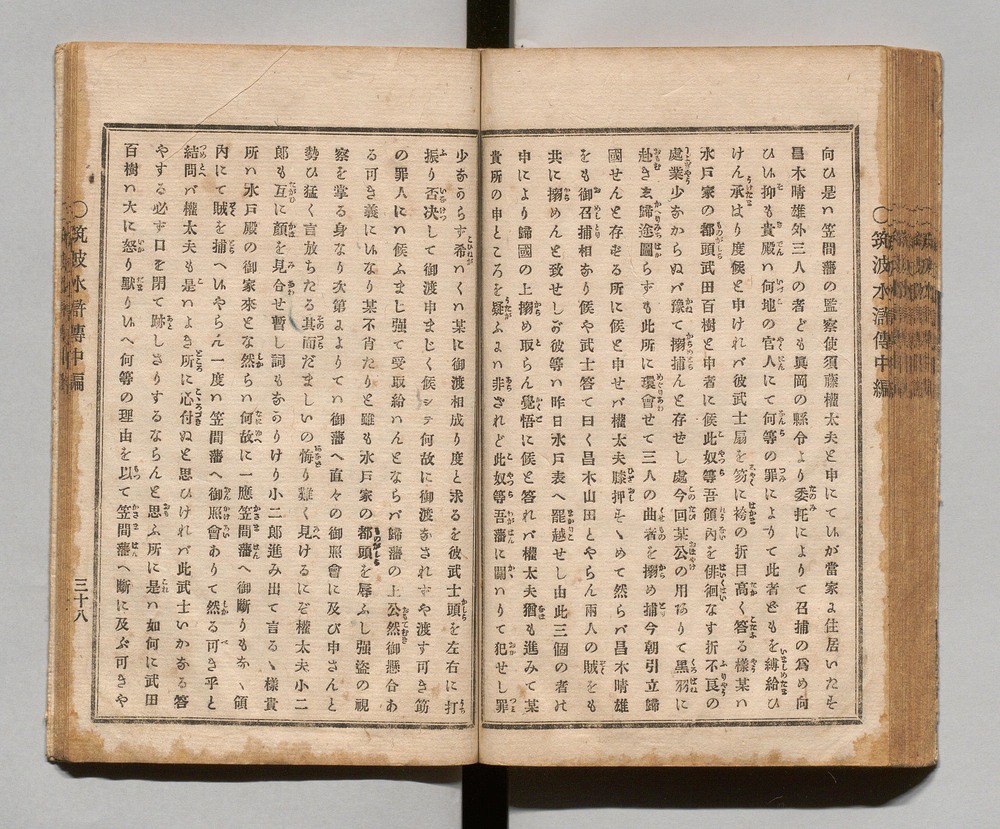 ○筑波水滸傳中編
向ひ是ハ笠間藩の監察使須藤權太夫と申にていが當家よ住居いたそ
昌木晴雄外三人の者ども眞岡の縣令より委托によりて召捕の爲め向
ひい抑も貴殿ハ何地の官人にて何等の罪によりて此者共をも縛給ひ
けん承はり度候と申けれバ彼武士扇を笏に袴の折目高く答る樣某ハ
水戸家の都頭武田百樹と申者に候此奴等吾領內を俳徊なす折不良の
處業少なからぬバ豫て搦捕んと存せし處今回某公の用向りて黑羽に
赴きゑ歸途圖らずも此所に環會せて三人の曲者を搦め捕今朝引立歸
國せんと存をる所に候と申せバ權太夫膝押そゝめて然らバ昌木晴雄
をも御召捕相なり候や武士答て曰く昌木山田とやらん兩人の賊をも
共に搦めんと致せしが彼等ハ昨日水戸表へ罷越せし由此三個の者は
申により歸國の上搦め取らん覺悟に候と答れバ權太夫猶も進みて某
貴所の申ところを疑ふよハ非ざれど此奴等吾藩に關ハりて犯せし罪
少なからず希ハくハ某に御渡相成り度と求るを彼武士頭を左右に打
振り否決して御渡申まじく候シテ何故に御渡なされずや渡す可き筋
の罪人にハ候ふまじ强て受取給ハんとならバ歸藩の上公然御懸合あ
る可き義にいなり某不肖たりと雖も水戸家の都頭を辱ふし强盗の視
察を掌る身なり次第よよりてハ御藩へ直々の御照會に及び申さんと
勢ひ猛く言放ちたる其面だましいの悔り難く見けるにぞ權太夫小二
郎も互に顏を見合せ暫し詞もなうりけり小二郎進み出て言るゝ樣貴
所ハ水戸殿の御家來とな然らハ何故に一應笠間藩へ御斷りもなく領
內にて賊を捕へいやらん一度ハ笠間藩へ御照會ありて然る可き乎と
結問バ權太夫も是ハよき所に心付ぬと思ひけれバ此武士いかなる答
やする必ず口を閉て跡しさりするならんと思ふ所に是ハ如何に武田
百樹ハ大に怒り默りいへ何等の理由を以て笠間藩へ斷に及ぶ可きや
○筑波水滸傳中編
三十八